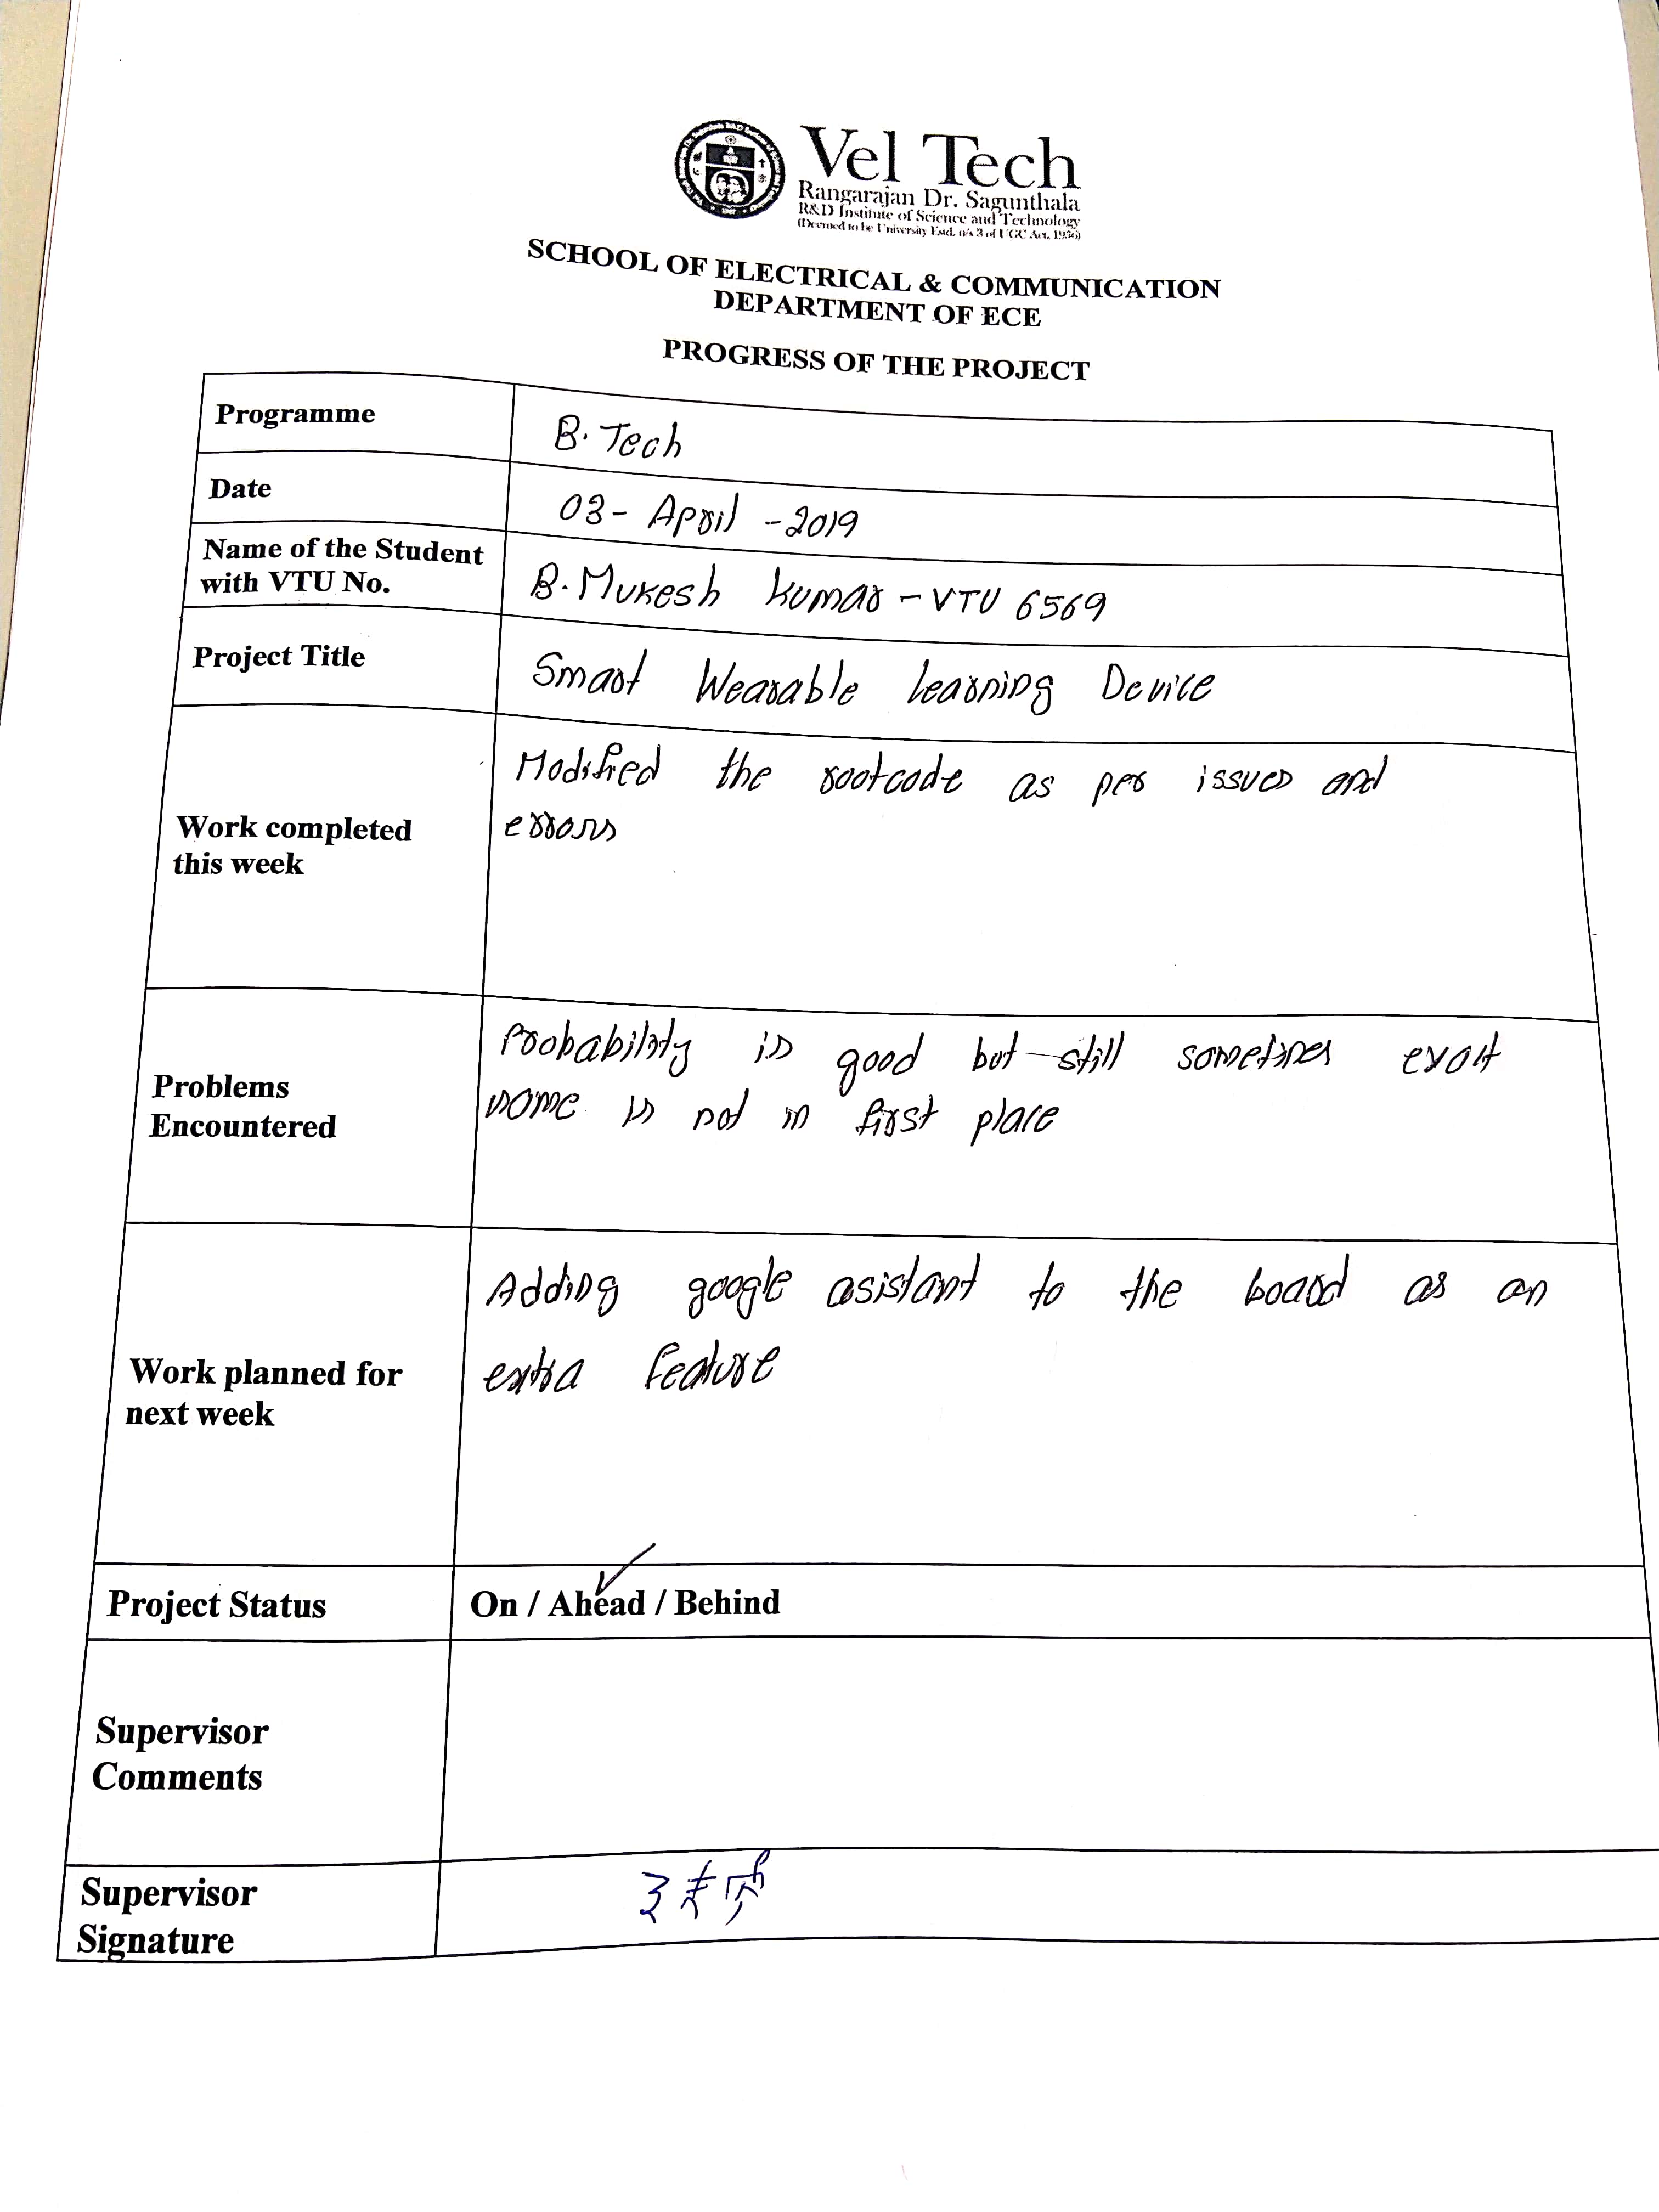 Vel Tech
Rangarajan Dr. Sagunthala
R&D Institute of Science and Technology
(Deemed to be University Estd. u/s 3 of UGC Act, 1956)
SCHOOL OF ELECTRICAL & COMMUNICATION
DEPARTMENT OF ECE
PROGRESS OF THE PROJECT
Programme
B.Tech
Date
03- April -2019
Name of the Student
with VTU No.
B.Mukesh Kumar - VTU 6569
Project Title
Smart Wearable learning Device
Work completed
this week
Modified the rootcode as per issues and
errors
Problems
Encountered
Probability is good but still sometimes exact
name is not in first place
Work planned for
next week
Adding google asistant to the board as an
extra feature
Project Status
On / Ahead / Behind
Supervisor
Comments
Supervisor
Signature